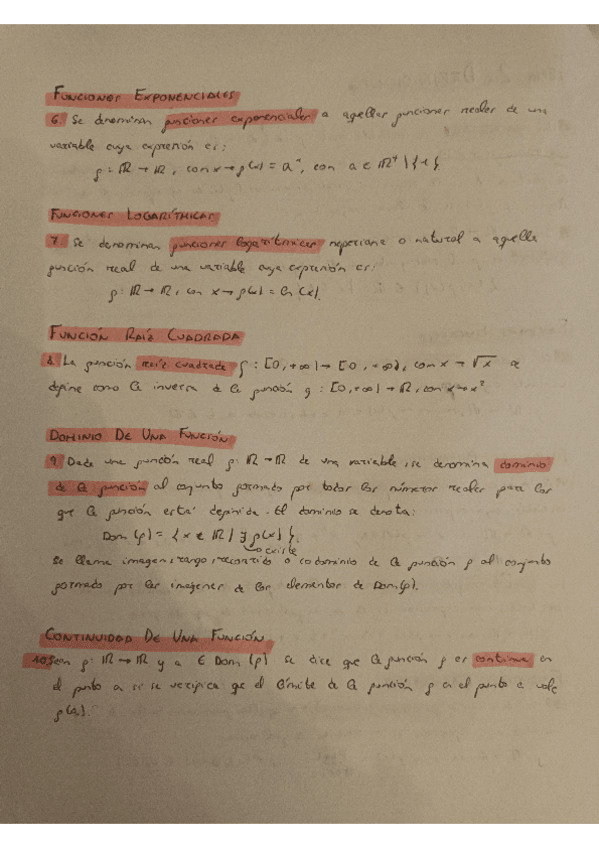 FUNCIONES EXPONENCIALES
6. Se denominan funciones exponenciales a aquellas funciones reales de una
variable cuya expresión es:
f: ℝ → ℝ, con x → f(x) = aˣ, con a ∈ ℝ⁺ \ {1}.
FUNCIONES LOGARÍTMICAS
7. Se denominan funciones logarítmicas neperiana o natural a aquella
función real de una variable cuya expresión es:
f: ℝ → ℝ, con x → f(x) = ln(x).
FUNCIÓN RAÍZ CUADRADA
8. La función raíz cuadrada f: [0, +∞) → [0, +∞), con x → √x se
define como la inversa de la función g: [0, +∞) → ℝ, con x → x².
DOMINIO DE UNA FUNCIÓN
9. Dada una función real f: ℝ → ℝ de una variable, se denomina dominio
de la función al conjunto formado por todos los números reales para los
que la función está definida. El dominio se denota:
Dom(f) = {x ∈ ℝ / ∃ f(x)}.
existe
Se llama imagen, rango, recorrido o codominio de la función f al conjunto
formado por las imágenes de los elementos de Dom(f).
CONTINUIDAD DE UNA FUNCIÓN
10. Sean f: ℝ → ℝ y a ∈ Dom(f) se dice que la función f es continua en
el punto a si se verifica que el límite de la función f en el punto a vale
f(a).